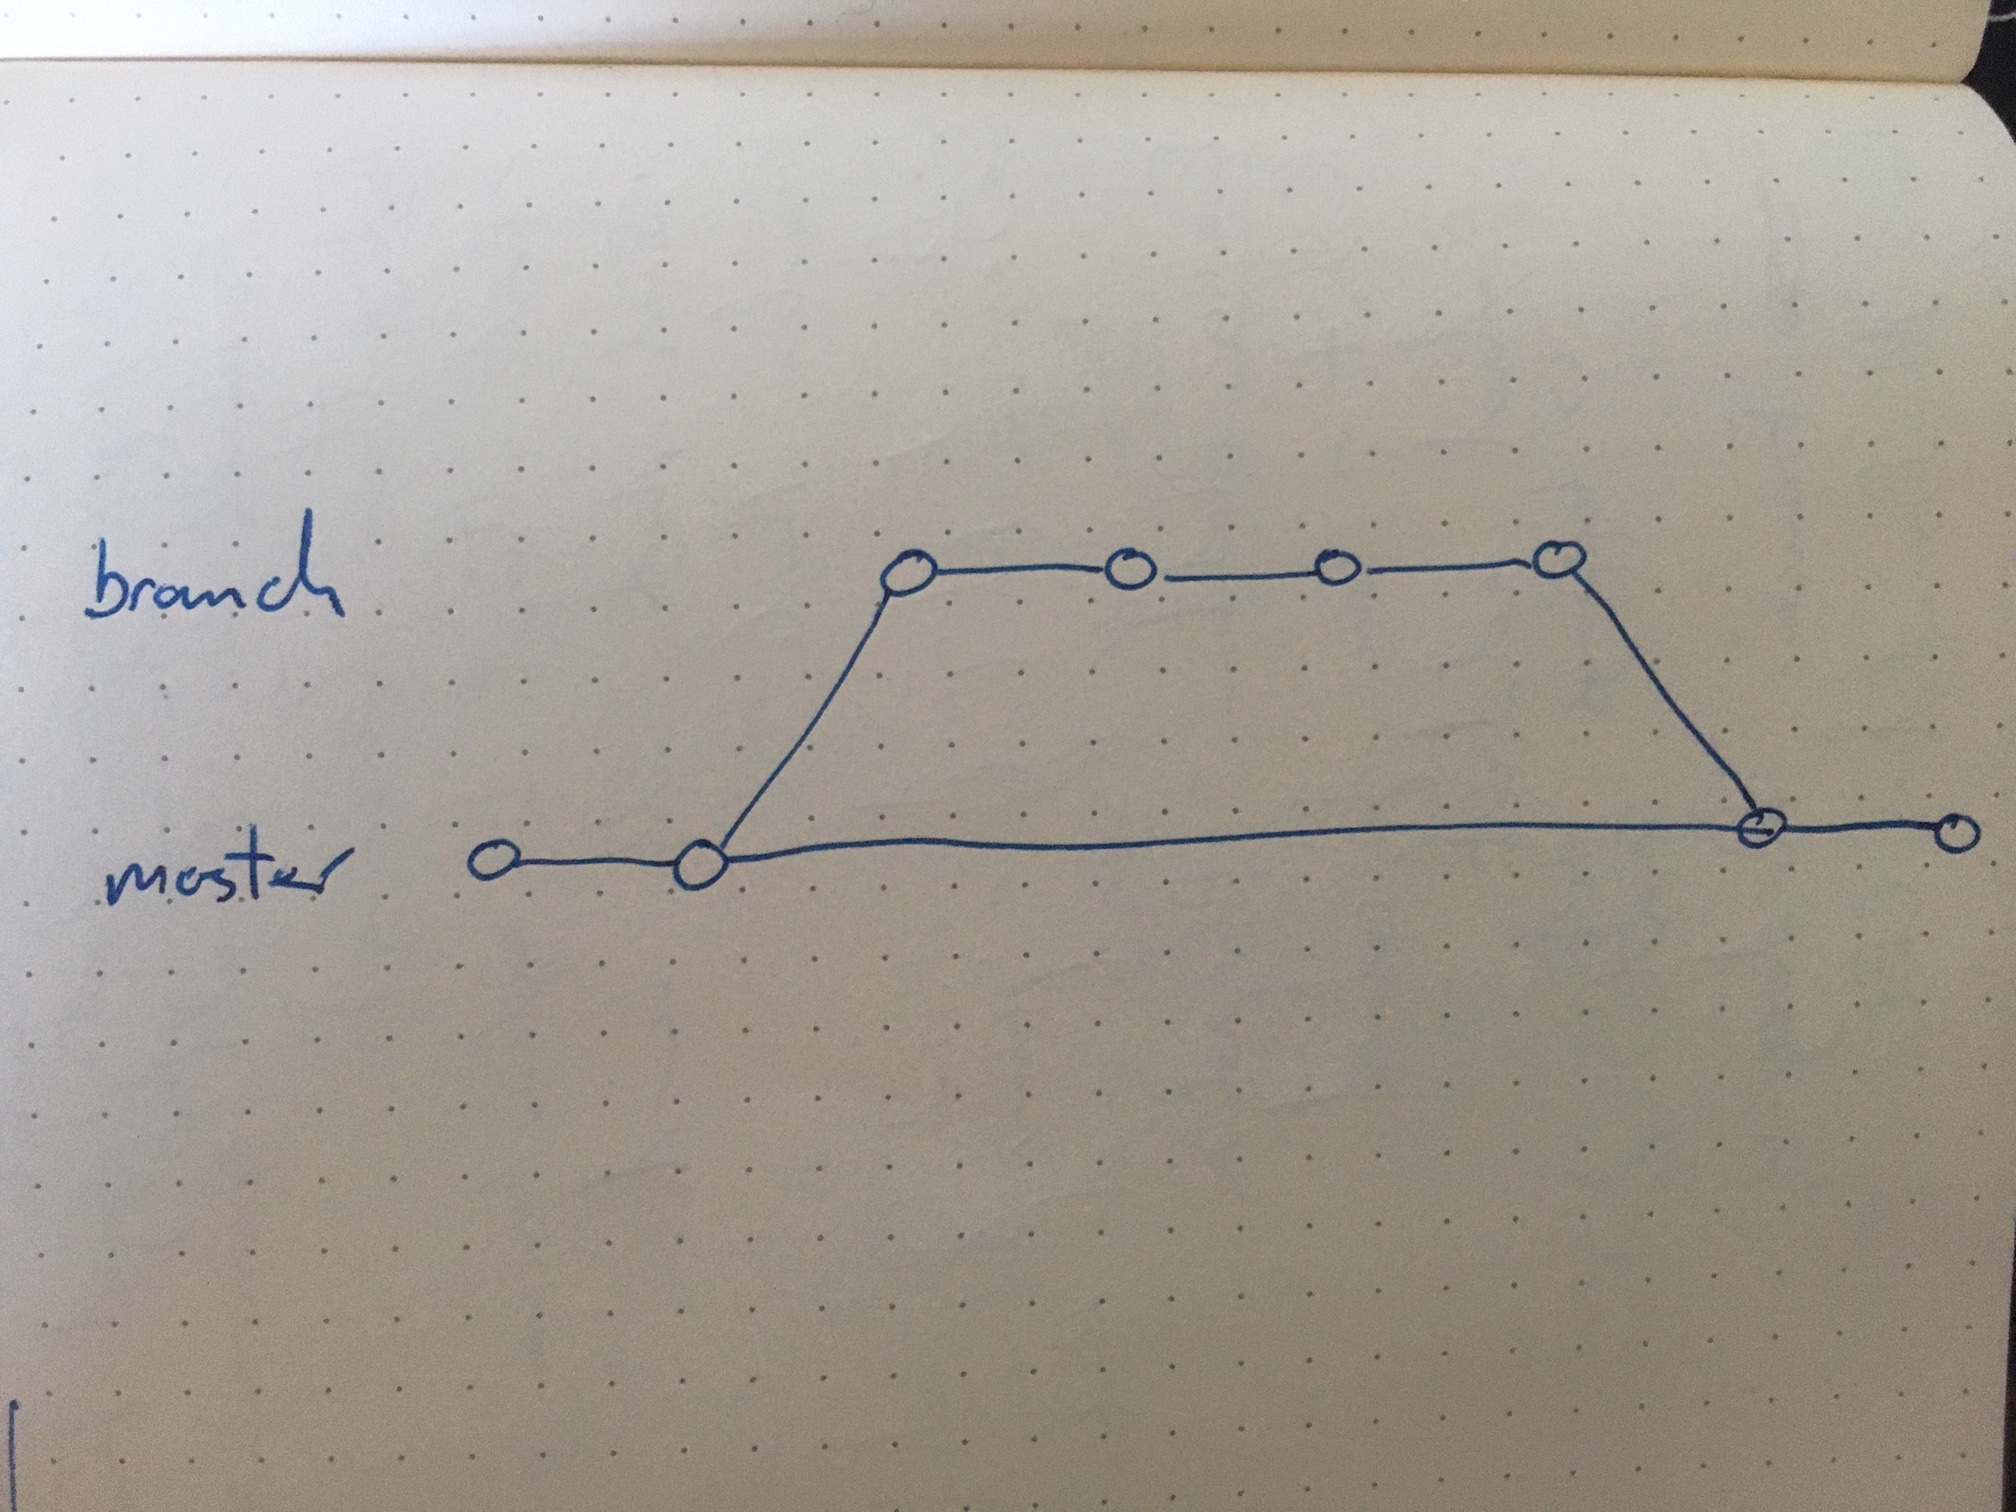 branch
master